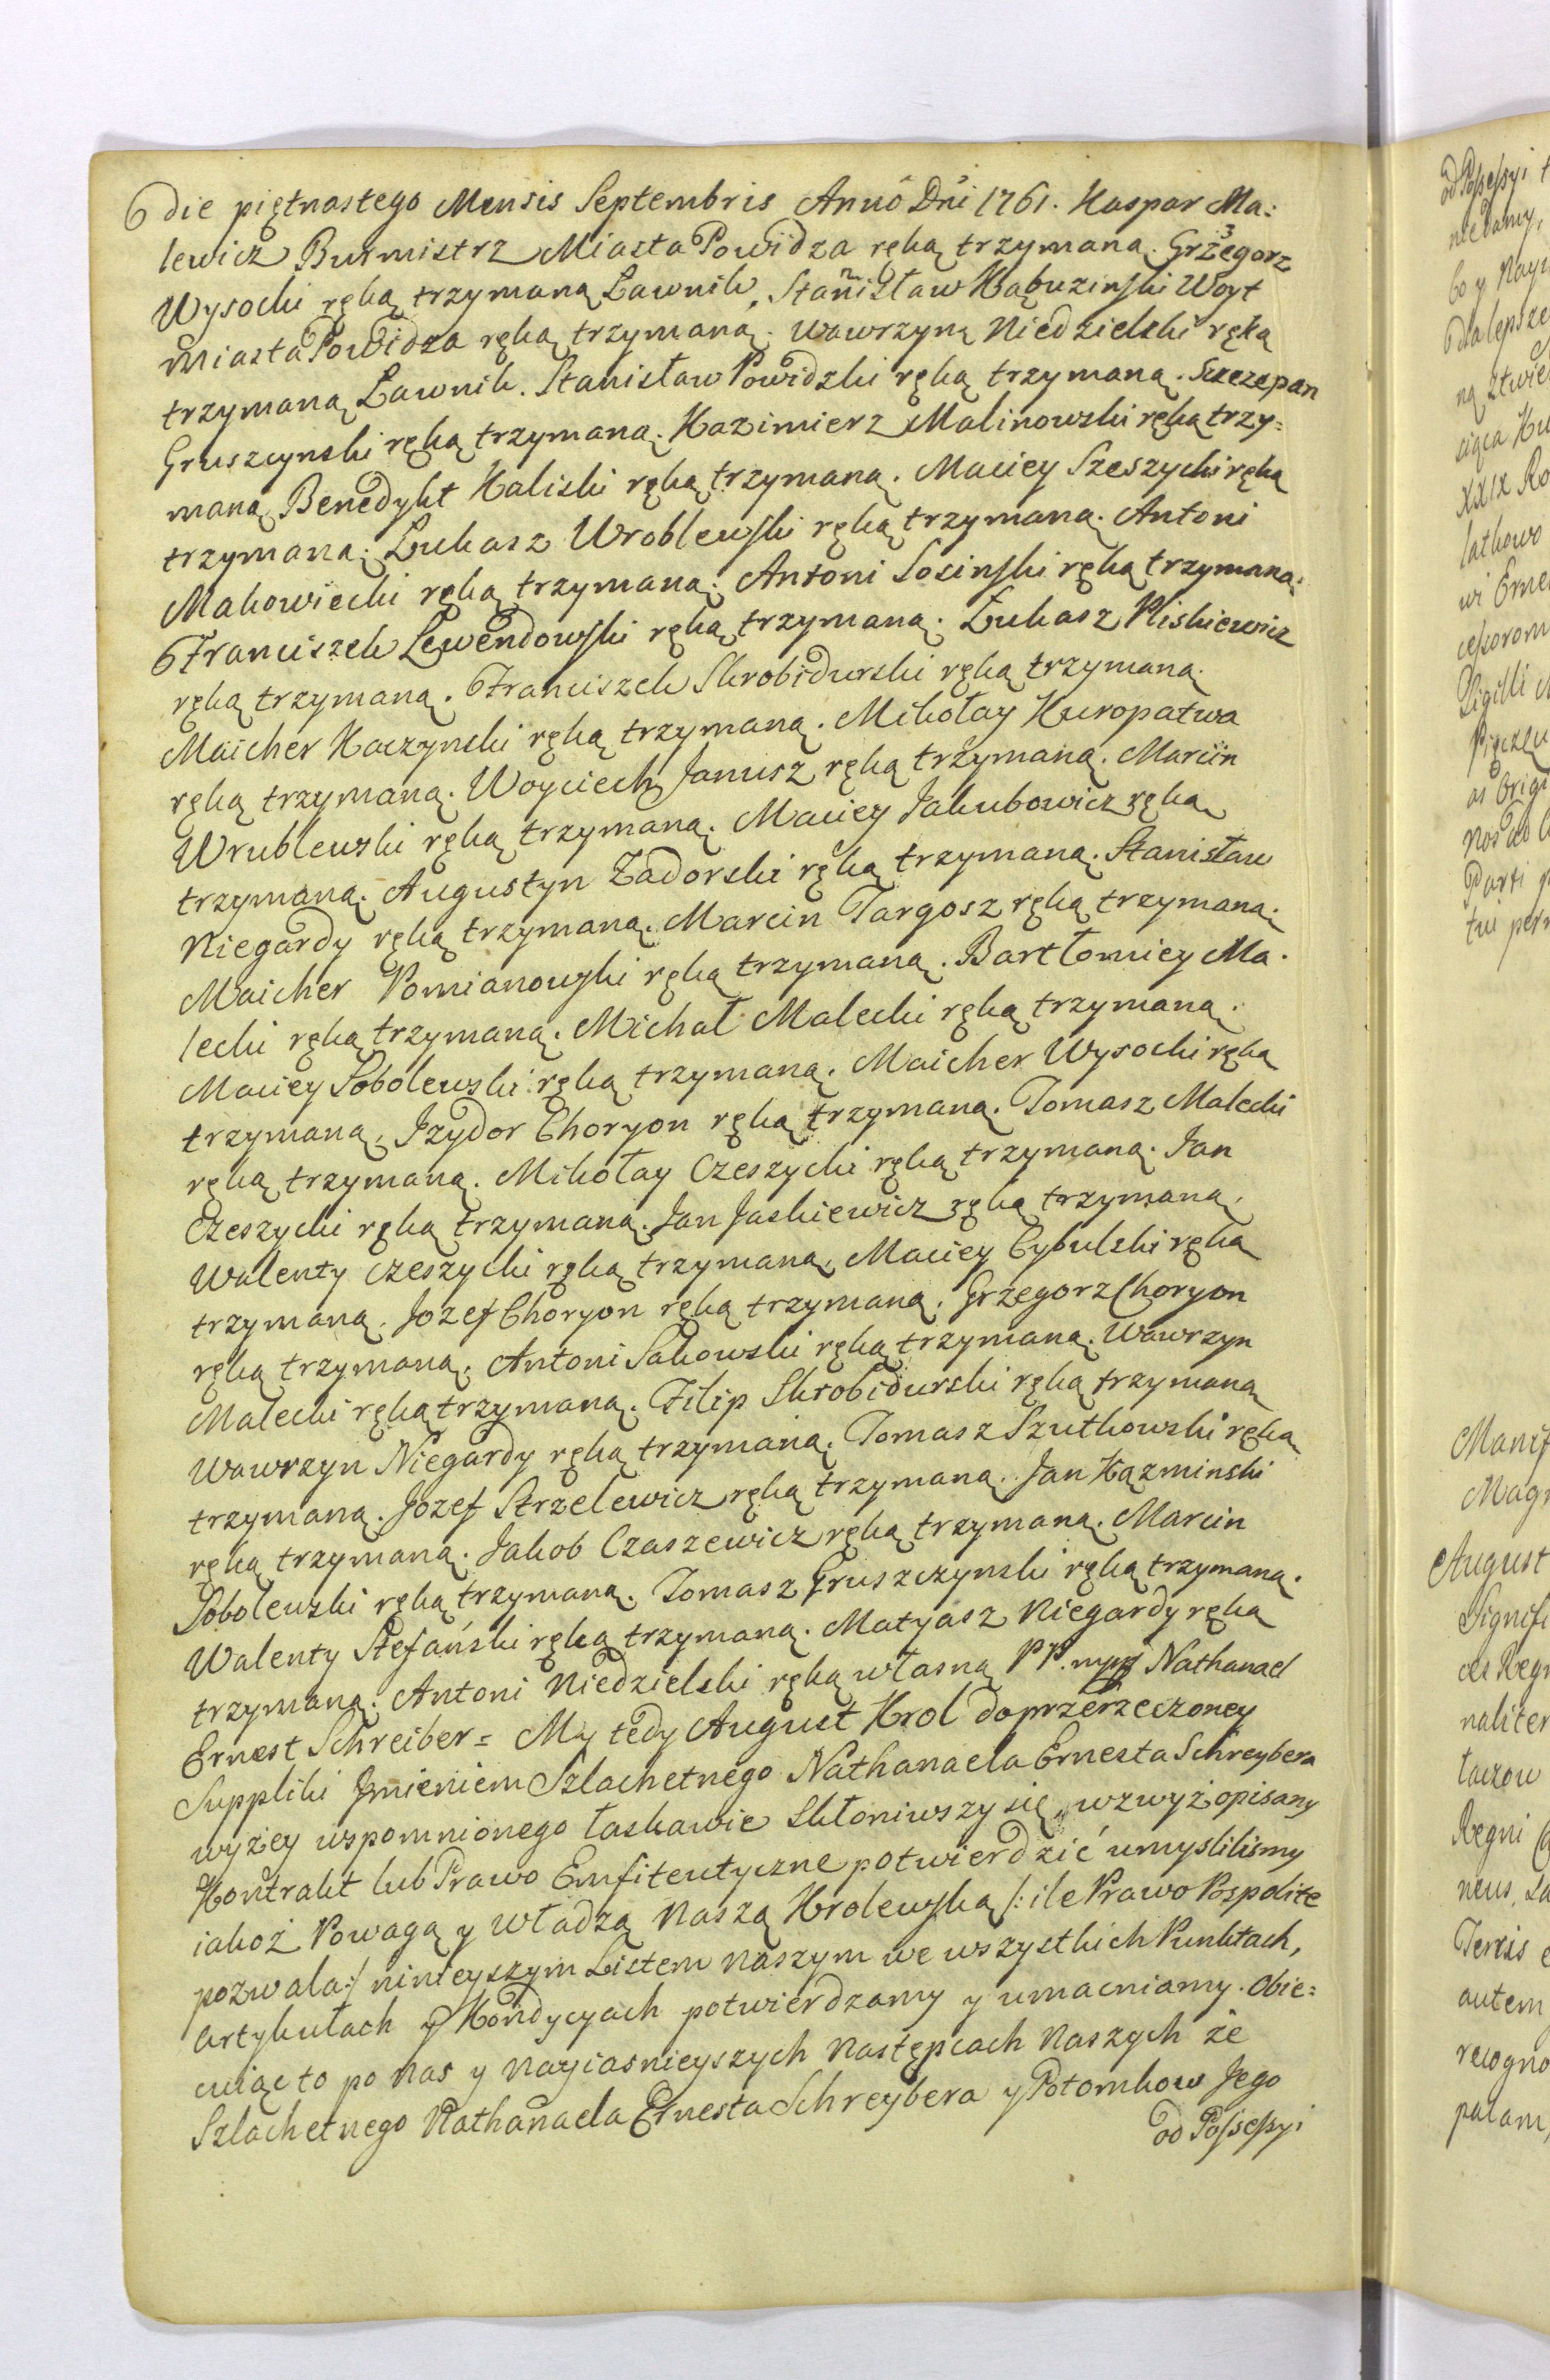 die piętnastego Mensis Septembris Anno Dni 1761. Kaspar Ma:
lewicz Burmistrz Miasta Powidza ręką trzymaną. Grzegorz
Wysocki ręką trzymaną Ławnik. Stanisław Kabuzinski Woyt
Miasta Powidza ręką trzymaną. Wawrzyn Niedzielski ręką
trzymaną Ławnik. Stanisław Powidzki ręką trzymaną. Szczepan
Gruszczynski ręką trzymaną. Kazimierz Malinowski ręką trzy=
maną Benedykt Kaliski ręką trzymaną. Maciey Szeszycki ręką
trzymaną. Łukasz Wroblewski ręką trzymaną. Antoni
Makowiecki ręką trzymaną. Antoni Sosinski ręką trzymaną.
Franciszek Lewendowski ręką trzymaną. Łukasz Pliskiewicz
ręką trzymaną. Franciszek Skrobidurski ręką trzymaną.
Maicher Kaczynski ręką trzymaną. Mikołay Kuropatwa
ręką trzymaną. Woyciech Janusz ręką trzymaną. Marcin
Wrublewski ręką trzymaną. Maciey Jakubowicz ręką
trzymaną. Augustyn Zadorski ręką trzymaną. Stanisław
Niegardy ręką trzymaną. Marcin Targosz ręką trzymaną.
Maicher Pomianowski ręką trzymaną. Bartłomiey Ma.
lecki ręką trzymaną. Michał Malecki ręką trzymaną.
Maciey Sobolewski ręką trzymaną. Maicher Wysocki ręką
trzymaną, Jzydor Choryon ręką trzymaną. Tomasz Malecki
ręką trzymaną. Mikołay Czeszycki ręką trzymaną. Jan
Czeszycki ręką trzymaną. Jan Jaskiewicz ręką trzymaną,
Walenty Czeszycki ręką trzymaną, Maciey Cybulski ręką
trzymaną. Jozef Choryon ręką trzymaną. Grzegorz Choryon
ręką trzymaną. Antoni Sakowski ręką trzymaną. Wawrzyn
Malecki ręką trzymaną. Filip Skrobidurski ręką trzymaną
Wawrzyn Niegardy ręką trzymaną. Tomasz Szutkowski ręką
trzymaną. Jozef Strzelewicz ręką trzymaną. Jan Kazminski
ręką trzymaną. Jakob Czaszewicz ręką trzymaną. Marcin
Sobolewski ręką trzymaną. Tomasz Gruszczynski ręką trzymaną.
Walenty Stefański ręką trzymaną. Matyasz Niegardy ręką
trzymaną. Antoni Niedzielski ręką własną PP. Nathanael
Ernest Schreiber = My tedy August Krol do przerzeczoney
Suppliki Jmieniem Szlachetnego Nathanaela Ernesta Schreybera
wyżey wspomnionego łaskawie skłoniwszy się, wzwyż opisany
Kontrakt lub Prawo Emfiteutyczne potwierdzić umyslilismy
iakoż Powagą y Władzą Naszą Krolewską /: ile Prawo Pospolite
pozwala :/ ninieyszym Listem Naszym we wszystkich Punktach,
Artykułach y Kondycyach potwierdzamy y umacniamy. Obie=
cuiąc to po Nas y Nayiasnieyszych Następcach Naszych że
Szlachetnego Nathanaela Ernesta Schreybera y Potomkow Jego
od Possessyi